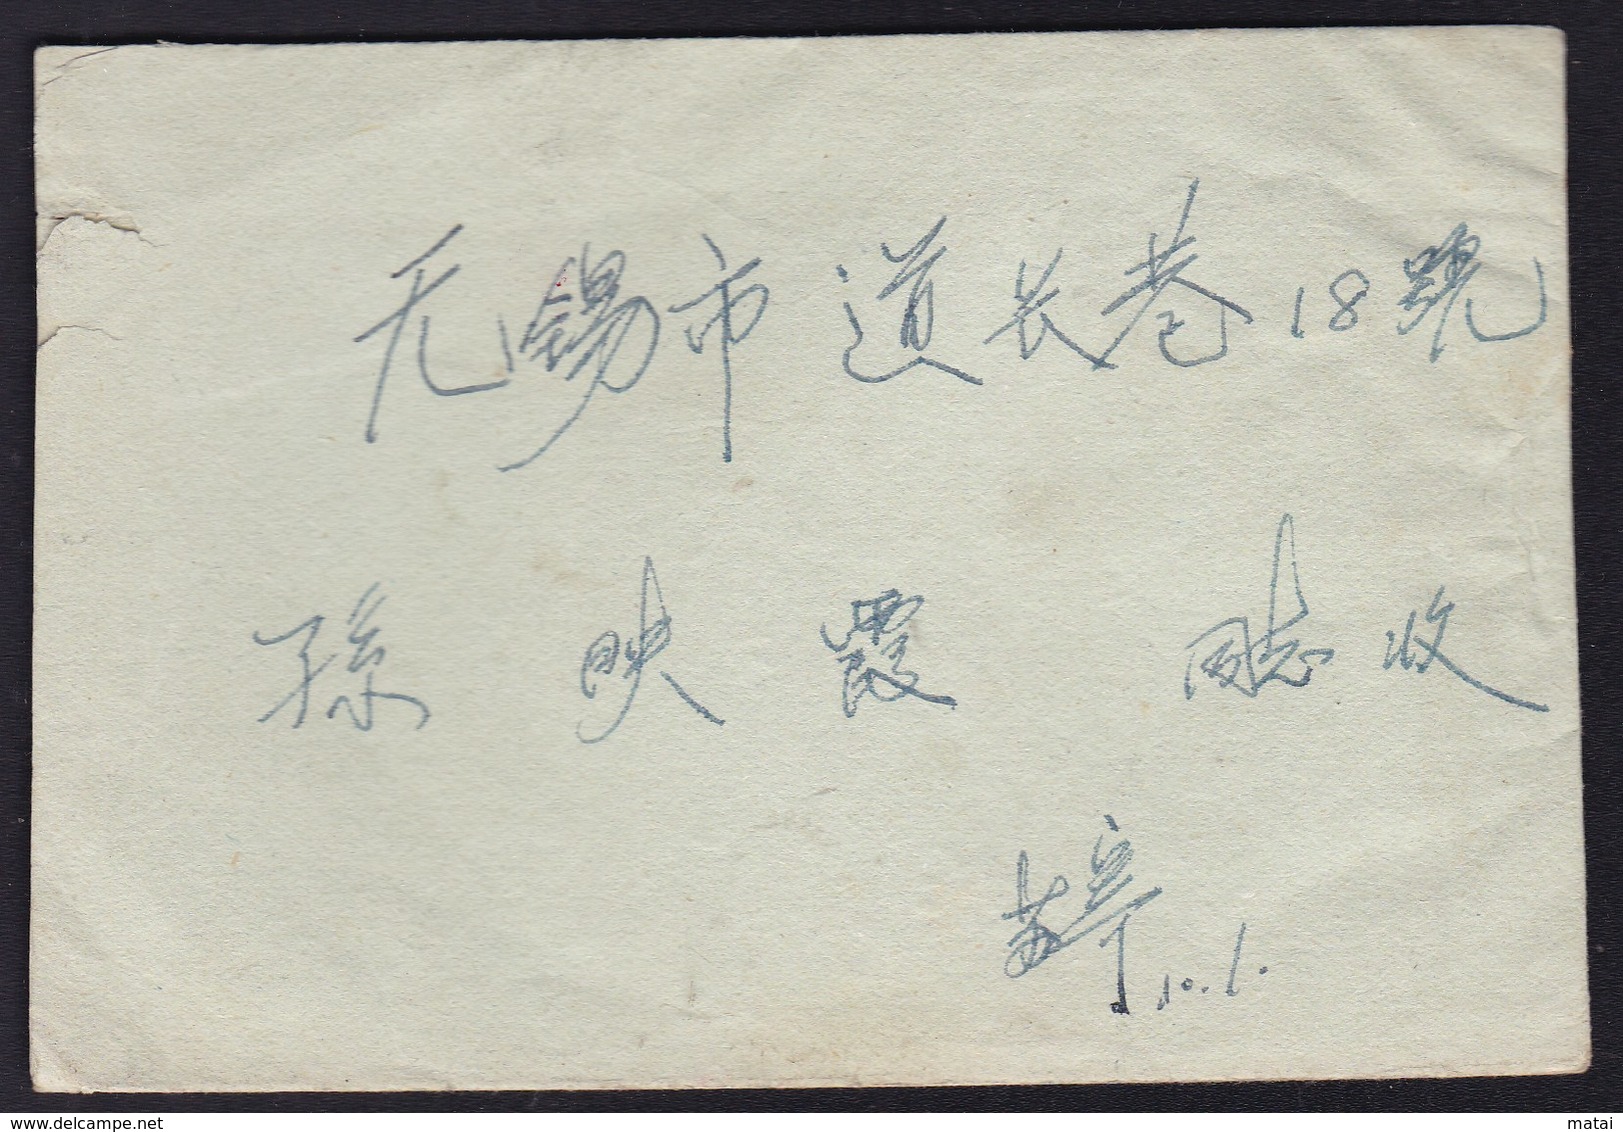 无锡市道长巷18號
孫映霞 同志收
10.1.
matai
www.delcampe.net